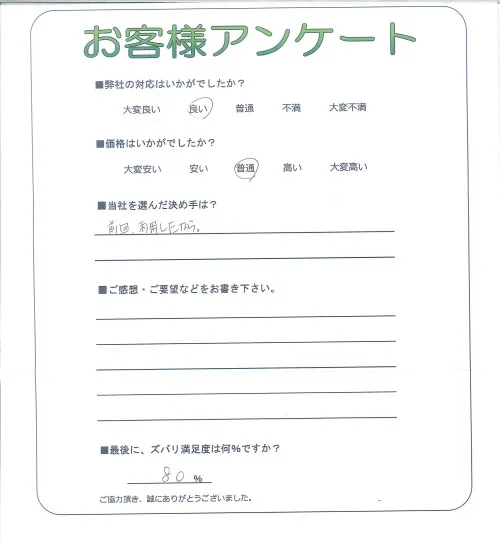 お客様アンケート
■弊社の対応はいかがでしたか？
大変良い 良い 普通 不満 大変不満
■価格はいかがでしたか？
大変安い 安い 普通 高い 大変高い
■当社を選んだ決め手は？
前回、利用したから。
■ご感想・ご要望などをお書き下さい。
■最後に、ズバリ満足度は何％ですか？
80 %
ご協力頂き、誠にありがとうございました。